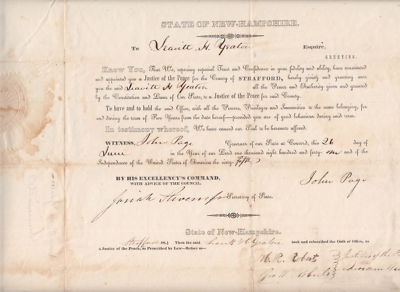 STATE OF NEW-HAMPSHIRE.
To Leavitt H. Esquire,
GREETING.
Know You, That We, reposing especial Trust and Confidence in your fidelity and ability, have constituted
and appointed you a Justice of the Peace for the County of STRAFFORD, hereby giving and granting unto
you the said Leavitt H all the Power and Authority given and granted
by the Constitution and Laws of Our State, to a Justice of the Peace for said County.
To have and to hold the said Office, with all the Powers, Privileges and Immunities to the same belonging, for
and during the term of Five Years from the date hereof—provided you are of good behaviour during said term.
In testimony whereof, We have caused our Seal to be hereunto affixed.
WITNESS, John Page Governor of our State at Concord, this 26 day of
June in the Year of our Lord one thousand eight hundred and forty one and of the
Independence of the United States of America the sixty fifth
BY HIS EXCELLENCY'S COMMAND,
WITH ADVICE OF THE COUNCIL.
John Page
Josiah Stevens Jr Secretary of State.
State of New-Hampshire.
Strafford ss. Then the said took and subscribed the Oath of Office, as
a Justice of the Peace, as Prescribed by Law—Before us—